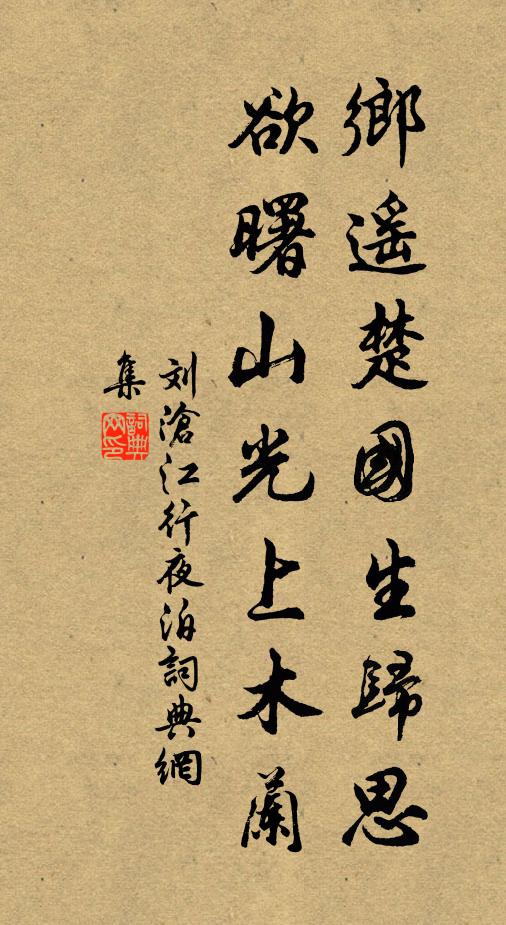 鄉遥楚國生歸思
欲曙山光上木蘭
刘滄江行夜泊詞典網
集
詞典
网印